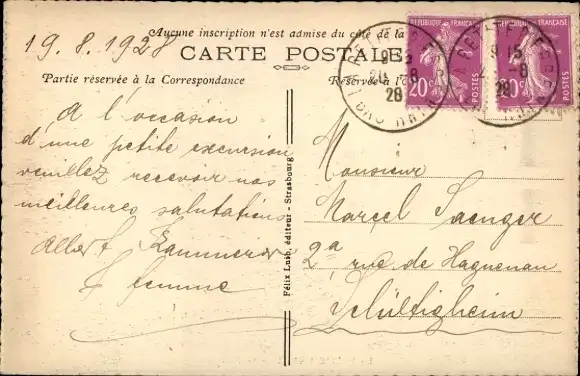 19.8.1928
Aucune inscription n'est admise du côté de la
CARTE POSTALE
Partie réservée à la Correspondance
Réservée à l'
RÉPUBLIQUE FRANÇAISE
20c
POSTES
RÉPUBLIQUE FRANÇAISE
20c
POSTES
BAS RHIN
28
9 15
28
A l'occasion
d'une petite excursion
veuillez recevoir nos
meilleures salutations
Albert
& femme
Félix Luib, éditeur - Strasbourg
Monsieur
Marcel Saenger
2a, rue de Haguenau
Schiltigheim